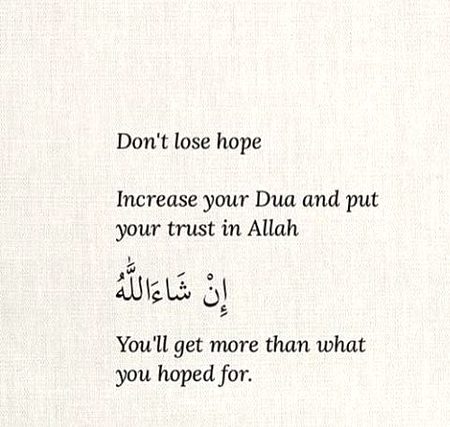 Don't lose hope
Increase your Dua and put
your trust in Allah
إِنْ شَاءَاللَّهُ
You'll get more than what
you hoped for.